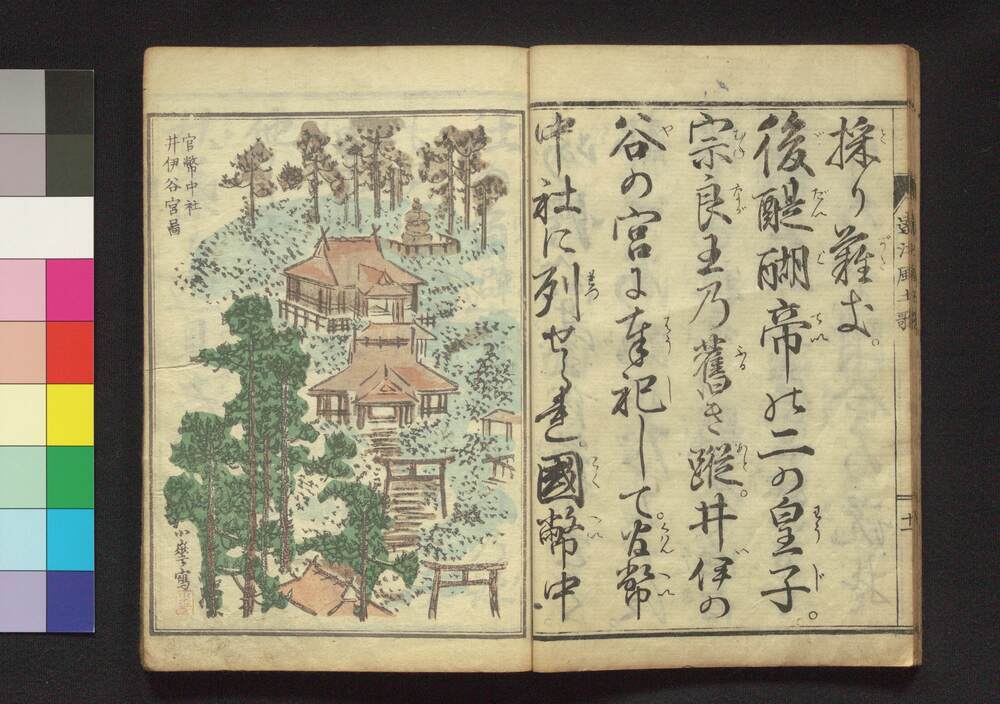 採り難
後醍醐帝の二の皇子。
宗良王乃舊き蹤。井伊の
谷の宮に奉祀して。官幣
中社に列せられ。國幣中
遠江風土歌
十一
官幣中社
井伊谷宮圖